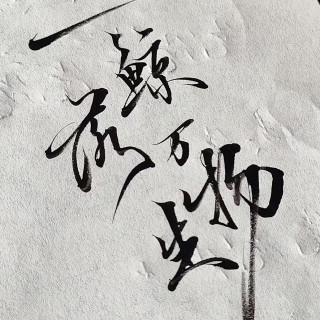 一鲸落
万物生